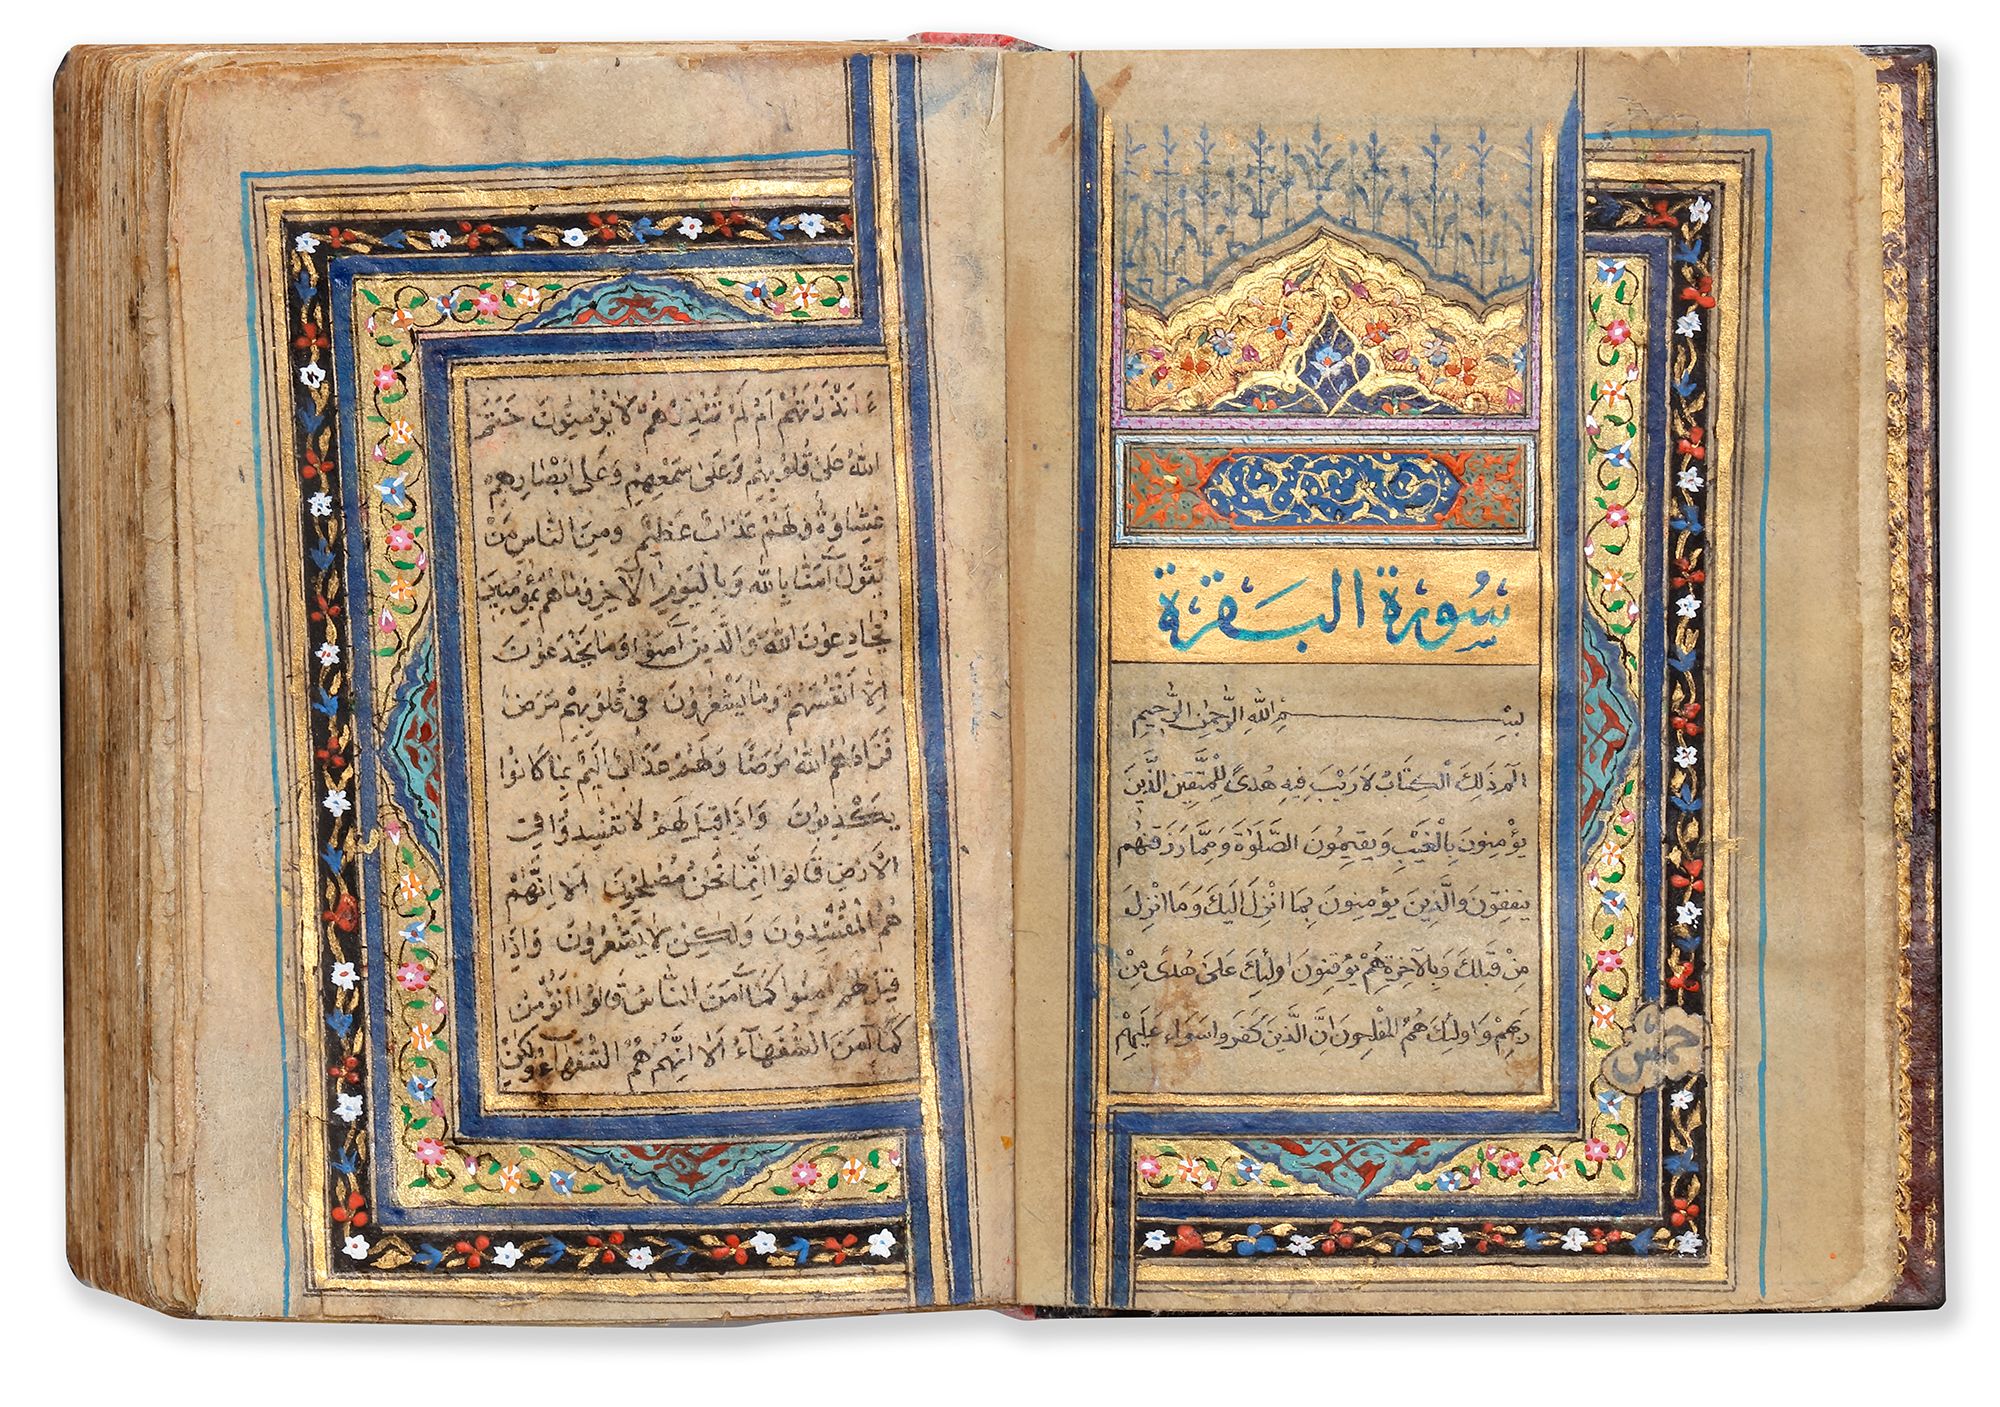 سُورة البَقرة
بِسْمِ اللهِ الرَّحمٰنِ الرَّحيمِ
الم ذٰلِكَ الْكِتَابُ لَا رَيْبَ فِيهِ هُدىً لِلْمُتَّقِينَ الَّذِينَ
يُؤْمِنُونَ بِالْغَيْبِ وَيُقِيمُونَ الصَّلَوٰةَ وَمِمَّا رَزَقْنٰهُمْ
يُنْفِقُونَ وَالَّذِينَ يُؤْمِنُونَ بِمَا اُنْزِلَ اِلَيْكَ وَمَا اُنْزِلَ
مِنْ قَبْلِكَ وَبِالْآخِرَةِ هُمْ يُوقِنُونَ اُولٰئِكَ عَلىٰ هُدىً مِنْ
رَبِّهِمْ وَاُولٰئِكَ هُمُ الْمُفْلِحُونَ اِنَّ الَّذِينَ كَفَرُوا سَوَاءٌ عَلَيْهِمْ
ءَاَنْذَرْتَهُمْ اَمْ لَمْ تُنْذِرْهُمْ لَا يُؤْمِنُونَ خَتَمَ
اللهُ عَلىٰ قُلُوبِهِمْ وَعَلىٰ سَمْعِهِمْ وَعَلىٰ اَبْصَارِهِمْ
غِشَاوَةٌ وَلَهُمْ عَذَابٌ عَظِيمٌ وَمِنَ النَّاسِ مَنْ
يَقُولُ آمَنَّا بِاللهِ وَبِالْيَوْمِ الْآخِرِ وَمَا هُمْ بِمُؤْمِنِينَ
يُخَادِعُونَ اللهَ وَالَّذِينَ آمَنُوا وَمَا يَخْدَعُونَ
اِلَّا اَنْفُسَهُمْ وَمَا يَشْعُرُونَ فِي قُلُوبِهِمْ مَرَضٌ
فَزَادَهُمُ اللهُ مَرَضًا وَلَهُمْ عَذَابٌ اَلِيمٌ بِمَا كَانُوا
يَكْذِبُونَ وَاِذَا قِيلَ لَهُمْ لَا تُفْسِدُوا فِي
الْاَرْضِ قَالُوا اِنَّمَا نَحْنُ مُصْلِحُونَ اَلَا اِنَّهُمْ
هُمُ الْمُفْسِدُونَ وَلٰكِنْ لَا يَشْعُرُونَ وَاِذَا
قِيلَ لَهُمْ آمِنُوا كَمَا آمَنَ النَّاسُ قَالُوا اَنُؤْمِنُ
كَمَا آمَنَ السُّفَهَآءُ اَلَا اِنَّهُمْ هُمُ السُّفَهَآءُ وَلٰكِنْ